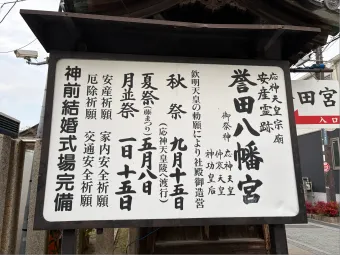 応神天皇宗廟
安産霊跡
誉田八幡宮
御祭神 応神天皇
仲哀天皇
神功皇后
欽明天皇の勅願により社殿御造営
秋祭 九月十五日
(応神天皇陵へ渡行)
夏祭(姫まつり) 五月八日
月並祭 一日 十五日
安産祈願 家内安全祈願
厄除祈願 交通安全祈願
神前結婚式場完備
田宮
入口